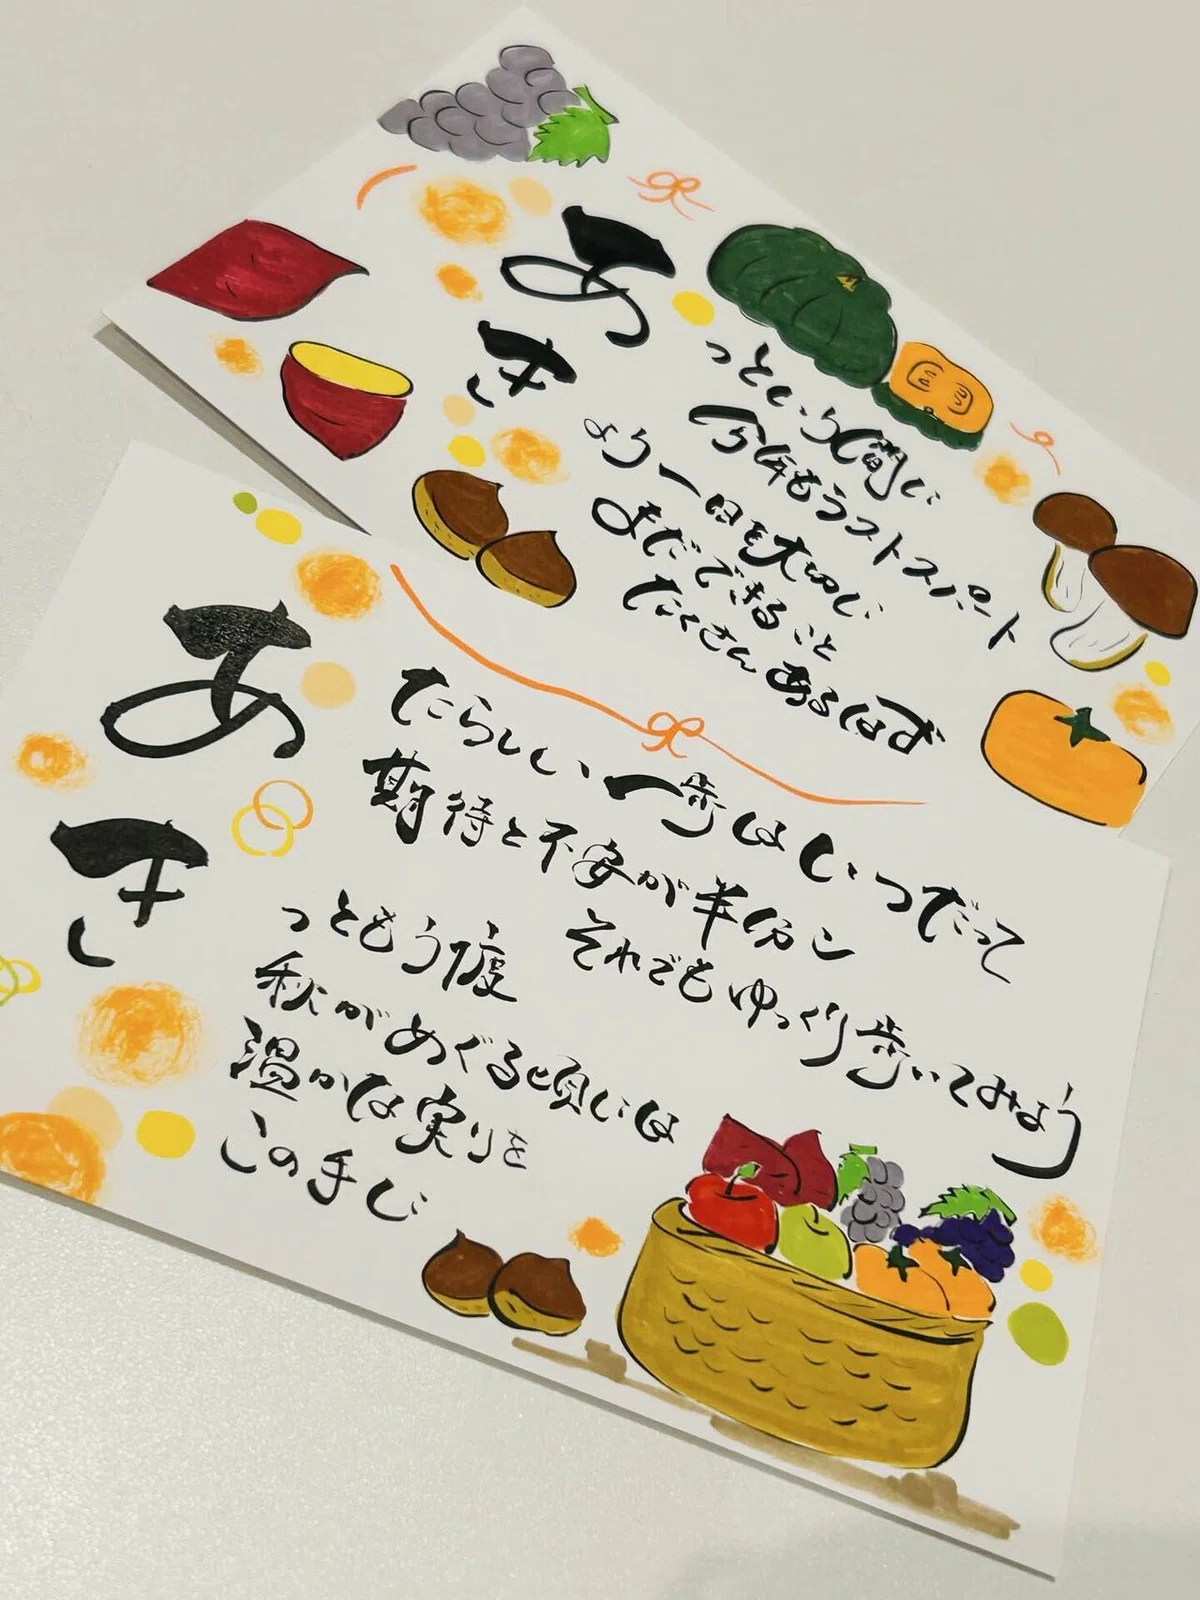 あっという間に
今年もラストスパート
きょう一日を大切に
まだできること
たくさんあるはず
あたらしい一歩はいつだって
期待と不安が半分こ
それでもゆっくり歩いてみよう
きっともう1度
秋がめぐる頃には
温かな実りを
この手に